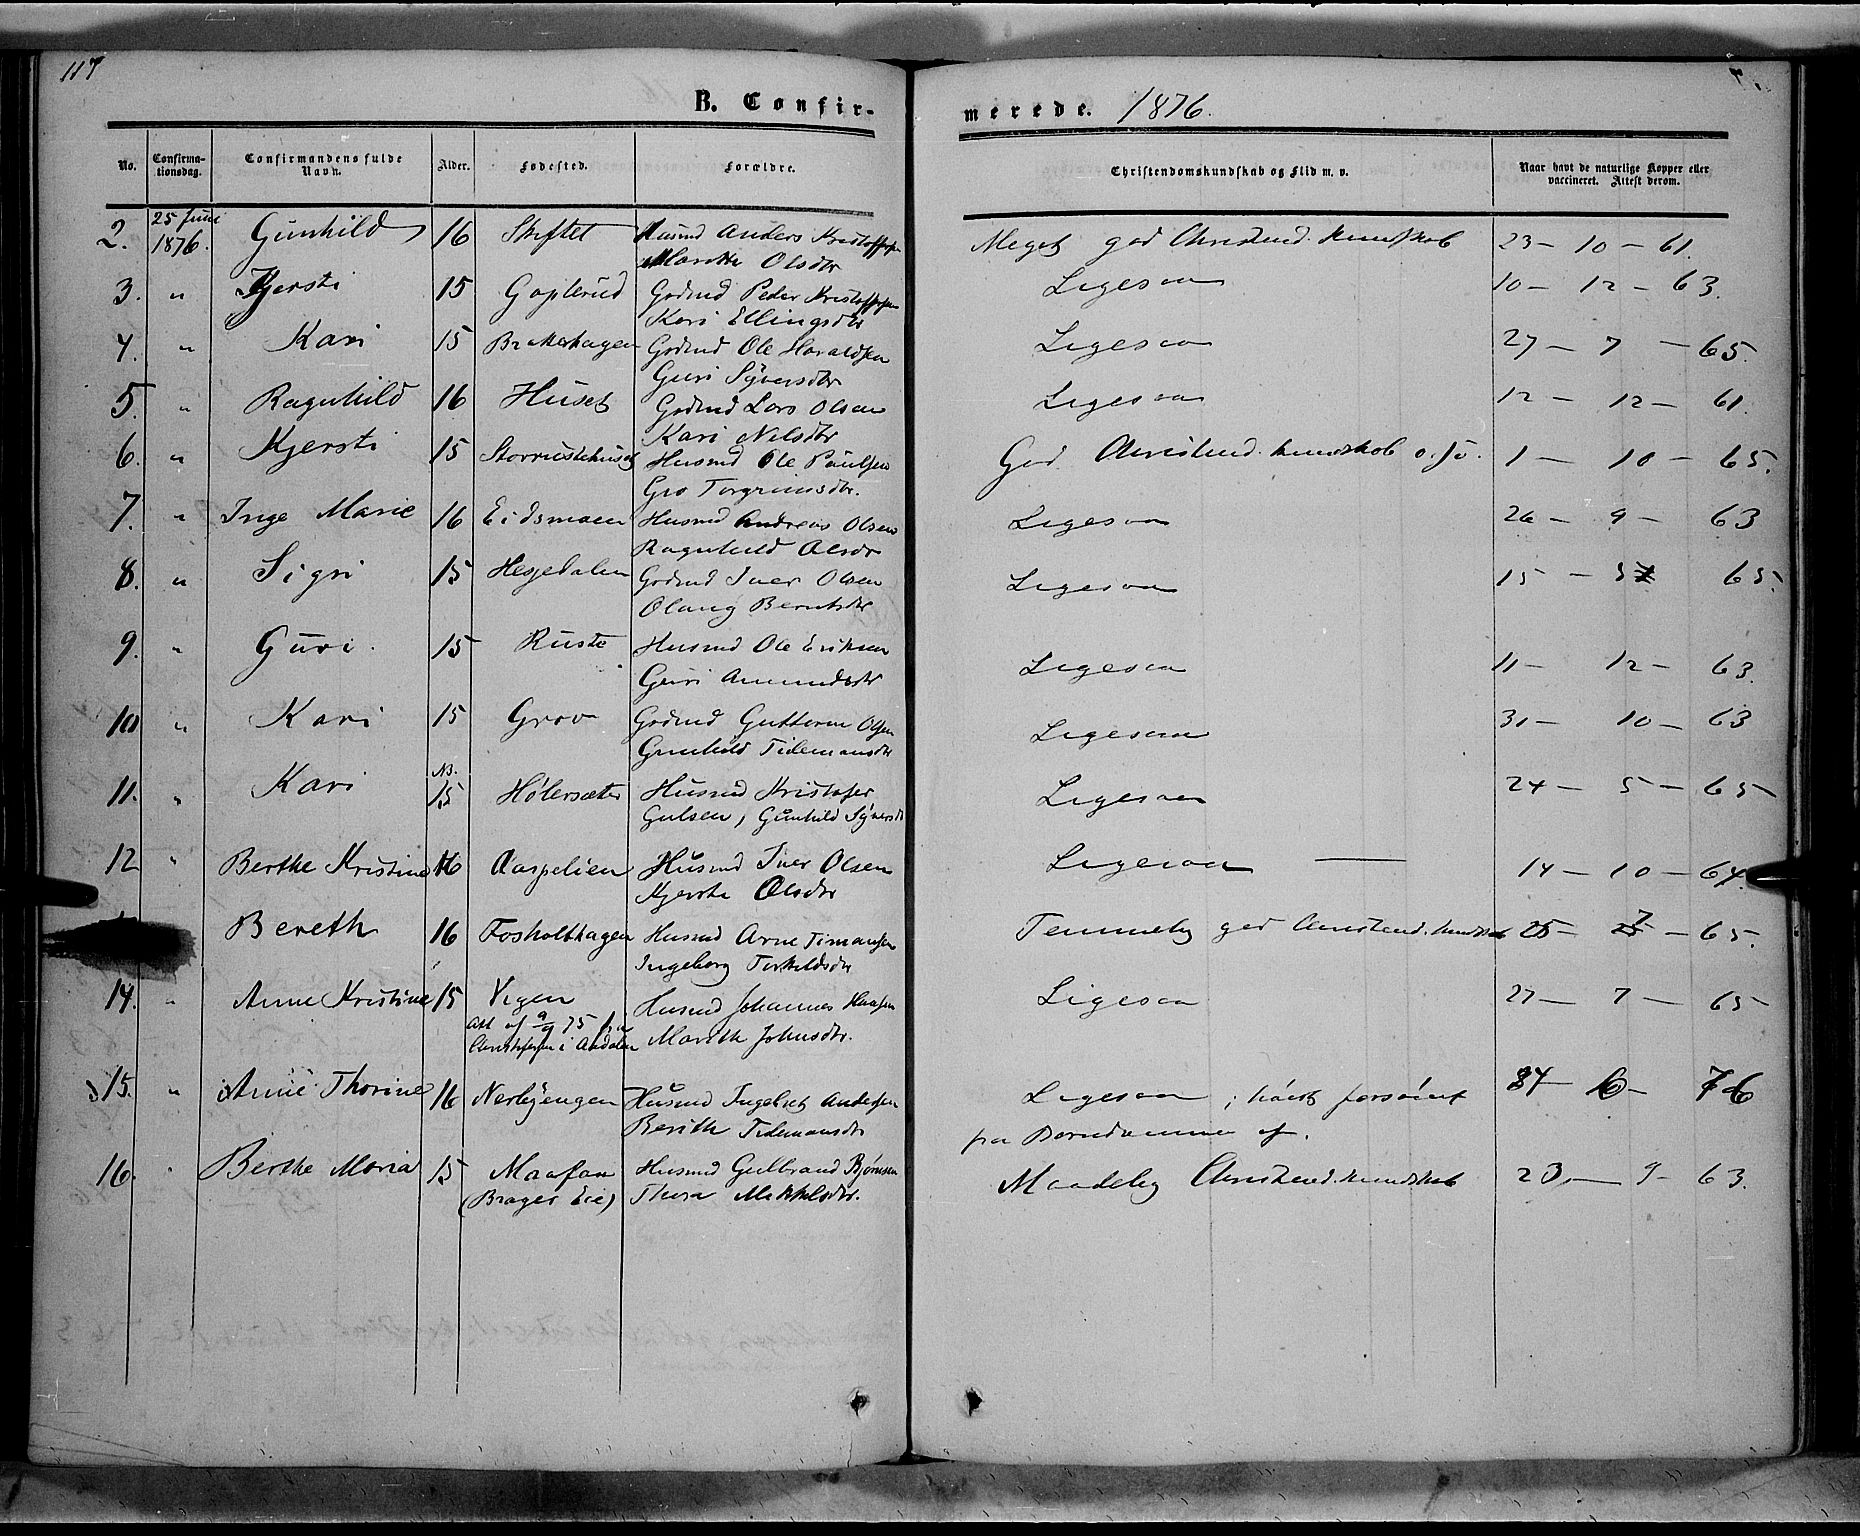 117
B. Confir-
merede. 1876.
No.
Confirma-
tionsdag.
Confirmandens fulde
Navn.
Alder.
Fødested.
Forældre.
Christendomskundskab og Flid m. v.
Naar havt de naturlige Kopper eller
vaccineret. Attest derom.
2. 25 Juni 1876. Gunhild 16 Skiftet Husmd Anders Kristoffersen Meget god Christend. kundskab 23 - 10 - 61.
Marithe Olsdtr
3. " Kjersti 15 Goplerud Gdmd Peder Kristoffersen Ligesaa 10 - 12 - 63.
Kari Ellingsdtr
4. " Kari 15 Brakerhagen Gdmd Ole Haraldsen Ligesaa 27 - 7 - 65.
Guri Syversdtr
5. " Ragnhild 16 Huset Gdmd Lars Olsen Ligesaa 12 - 12 - 61.
Kari Nilsdtr
6. " Kjersti 15 Storrustehuset Husmd Ole Paulsen God Christend. kundskab o. fl. 1 - 10 - 65.
Gro Torgrimsdtr.
7. " Inge Marie 16 Eidsmoen Husmd Andreas Olsen Ligesaa 26 - 9 - 63
Ragnhild Olsdr
8. " Sigri 15 Hesjedalen Gdmd Iver Olsen Ligesaa 15 - 5 65.
Olaug Berntsdtr
9. " Guri. 15 Ruste Husmd Ole Eriksen Ligesaa 11 - 12 - 63.
Guri Amundsdtr
10 " Kari 15 Grov Gdmd Guttorm Olsen Ligesaa 31 - 10 - 63
Gunhild Tidemansdtr
11. " Kari NB. 15 Hølersæter Husmd Kristofer Ligesaa 24 - 5 - 65
Gulsen, Gunhild Syversdtr
12 " Berthe Kristine 16 Aaspelien Husmd Iver Olsen Ligesaa — 14 - 10 - 64.
Kjersti Olsdtr
Bereth 16 Fosholthagen Husmd Arne Timansen Temmelig god Christend. kundskab 25 - 7 - 65.
Ingeborg Torkildsdtr
14. " Anne Kristine 15 Vigen Husmd Johannes Hansen Ligesaa 27 - 7 - 65
Att af 9/9 75 fra
Christofersen i Aadalen Marith Johnsdtr.
15. " Anne Thorine 16 Nerbyengen Husmd Ingebret Andersen Ligesaa; høist forsømt 6 - 76
Berith Tidemansdtr fra Barndommen af.
16. " Berthe Maria 15 Maafaa Husmd Gulbrand Bjørnsen Maadelig Christend. kundskab 23 - 9 - 63.
(Brager Eie) Thora Mikkelsdtr.